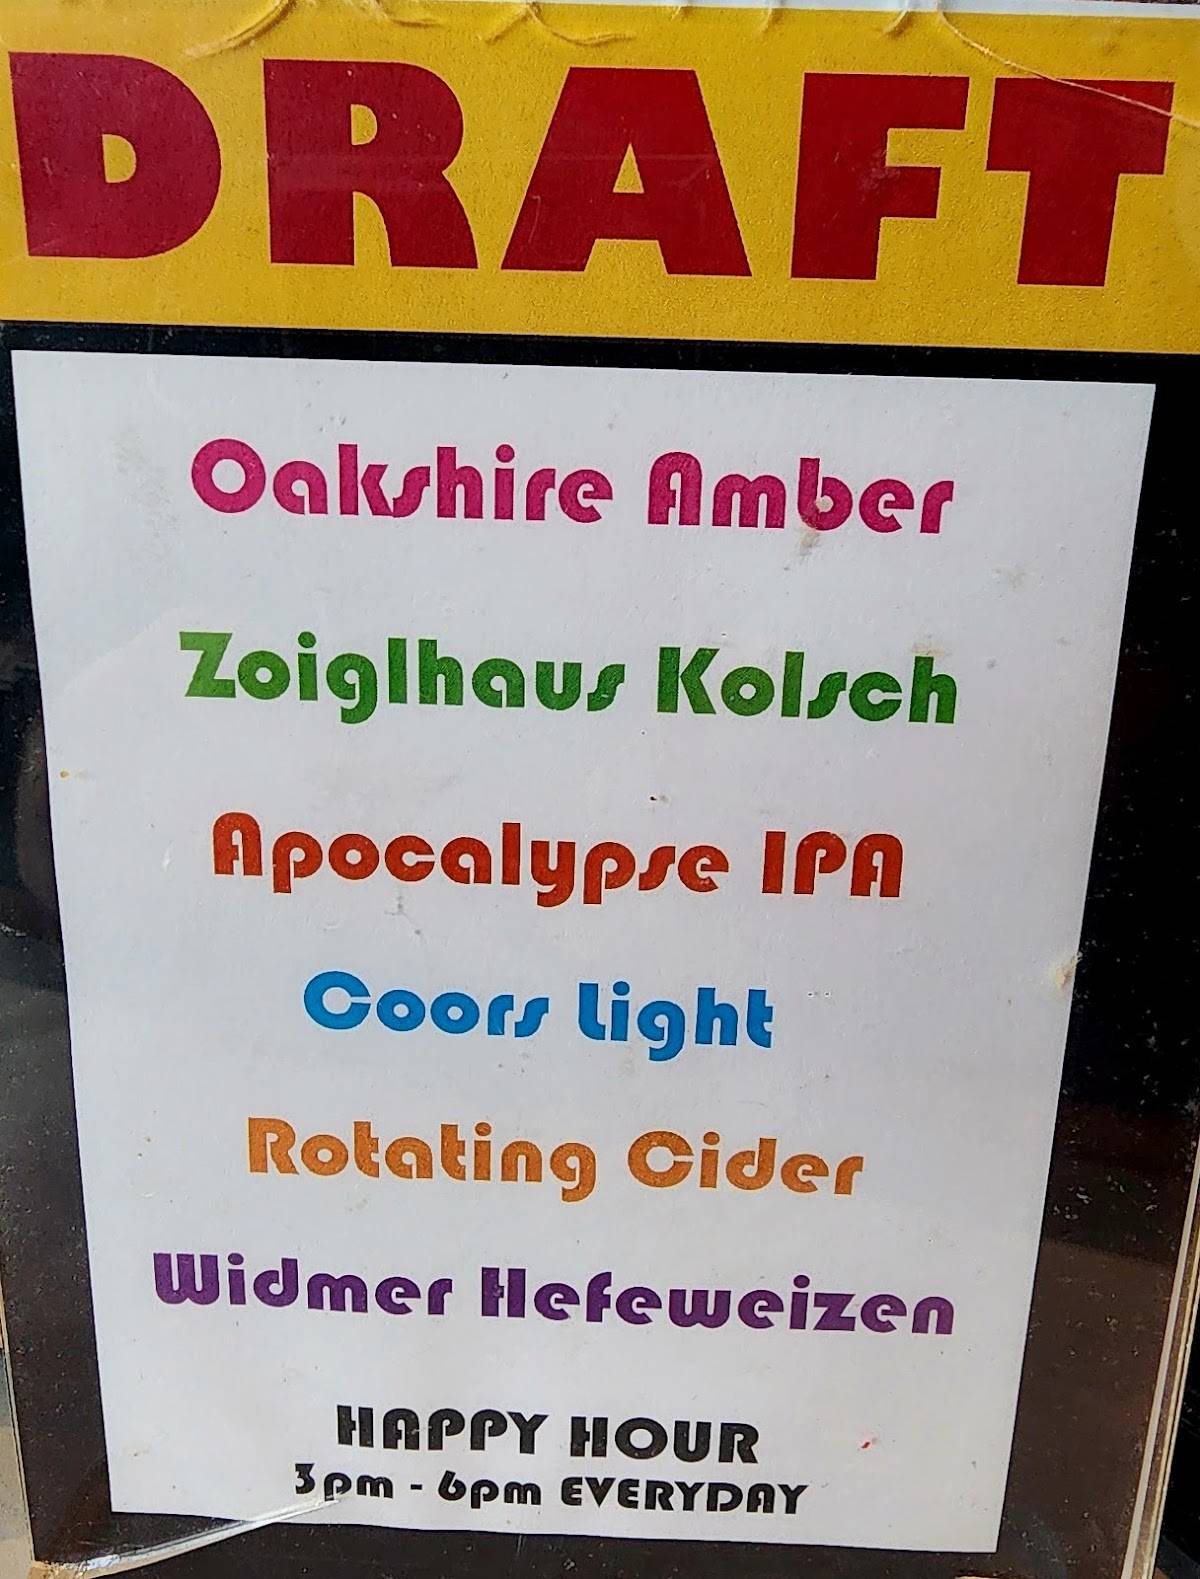 DRAFT
Oakshire Amber
Zoiglhaus Kolsch
Apocalypse IPA
Coors Light
Rotating Cider
Widmer Hefeweizen
HAPPY HOUR
3pm - 6pm EVERYDAY